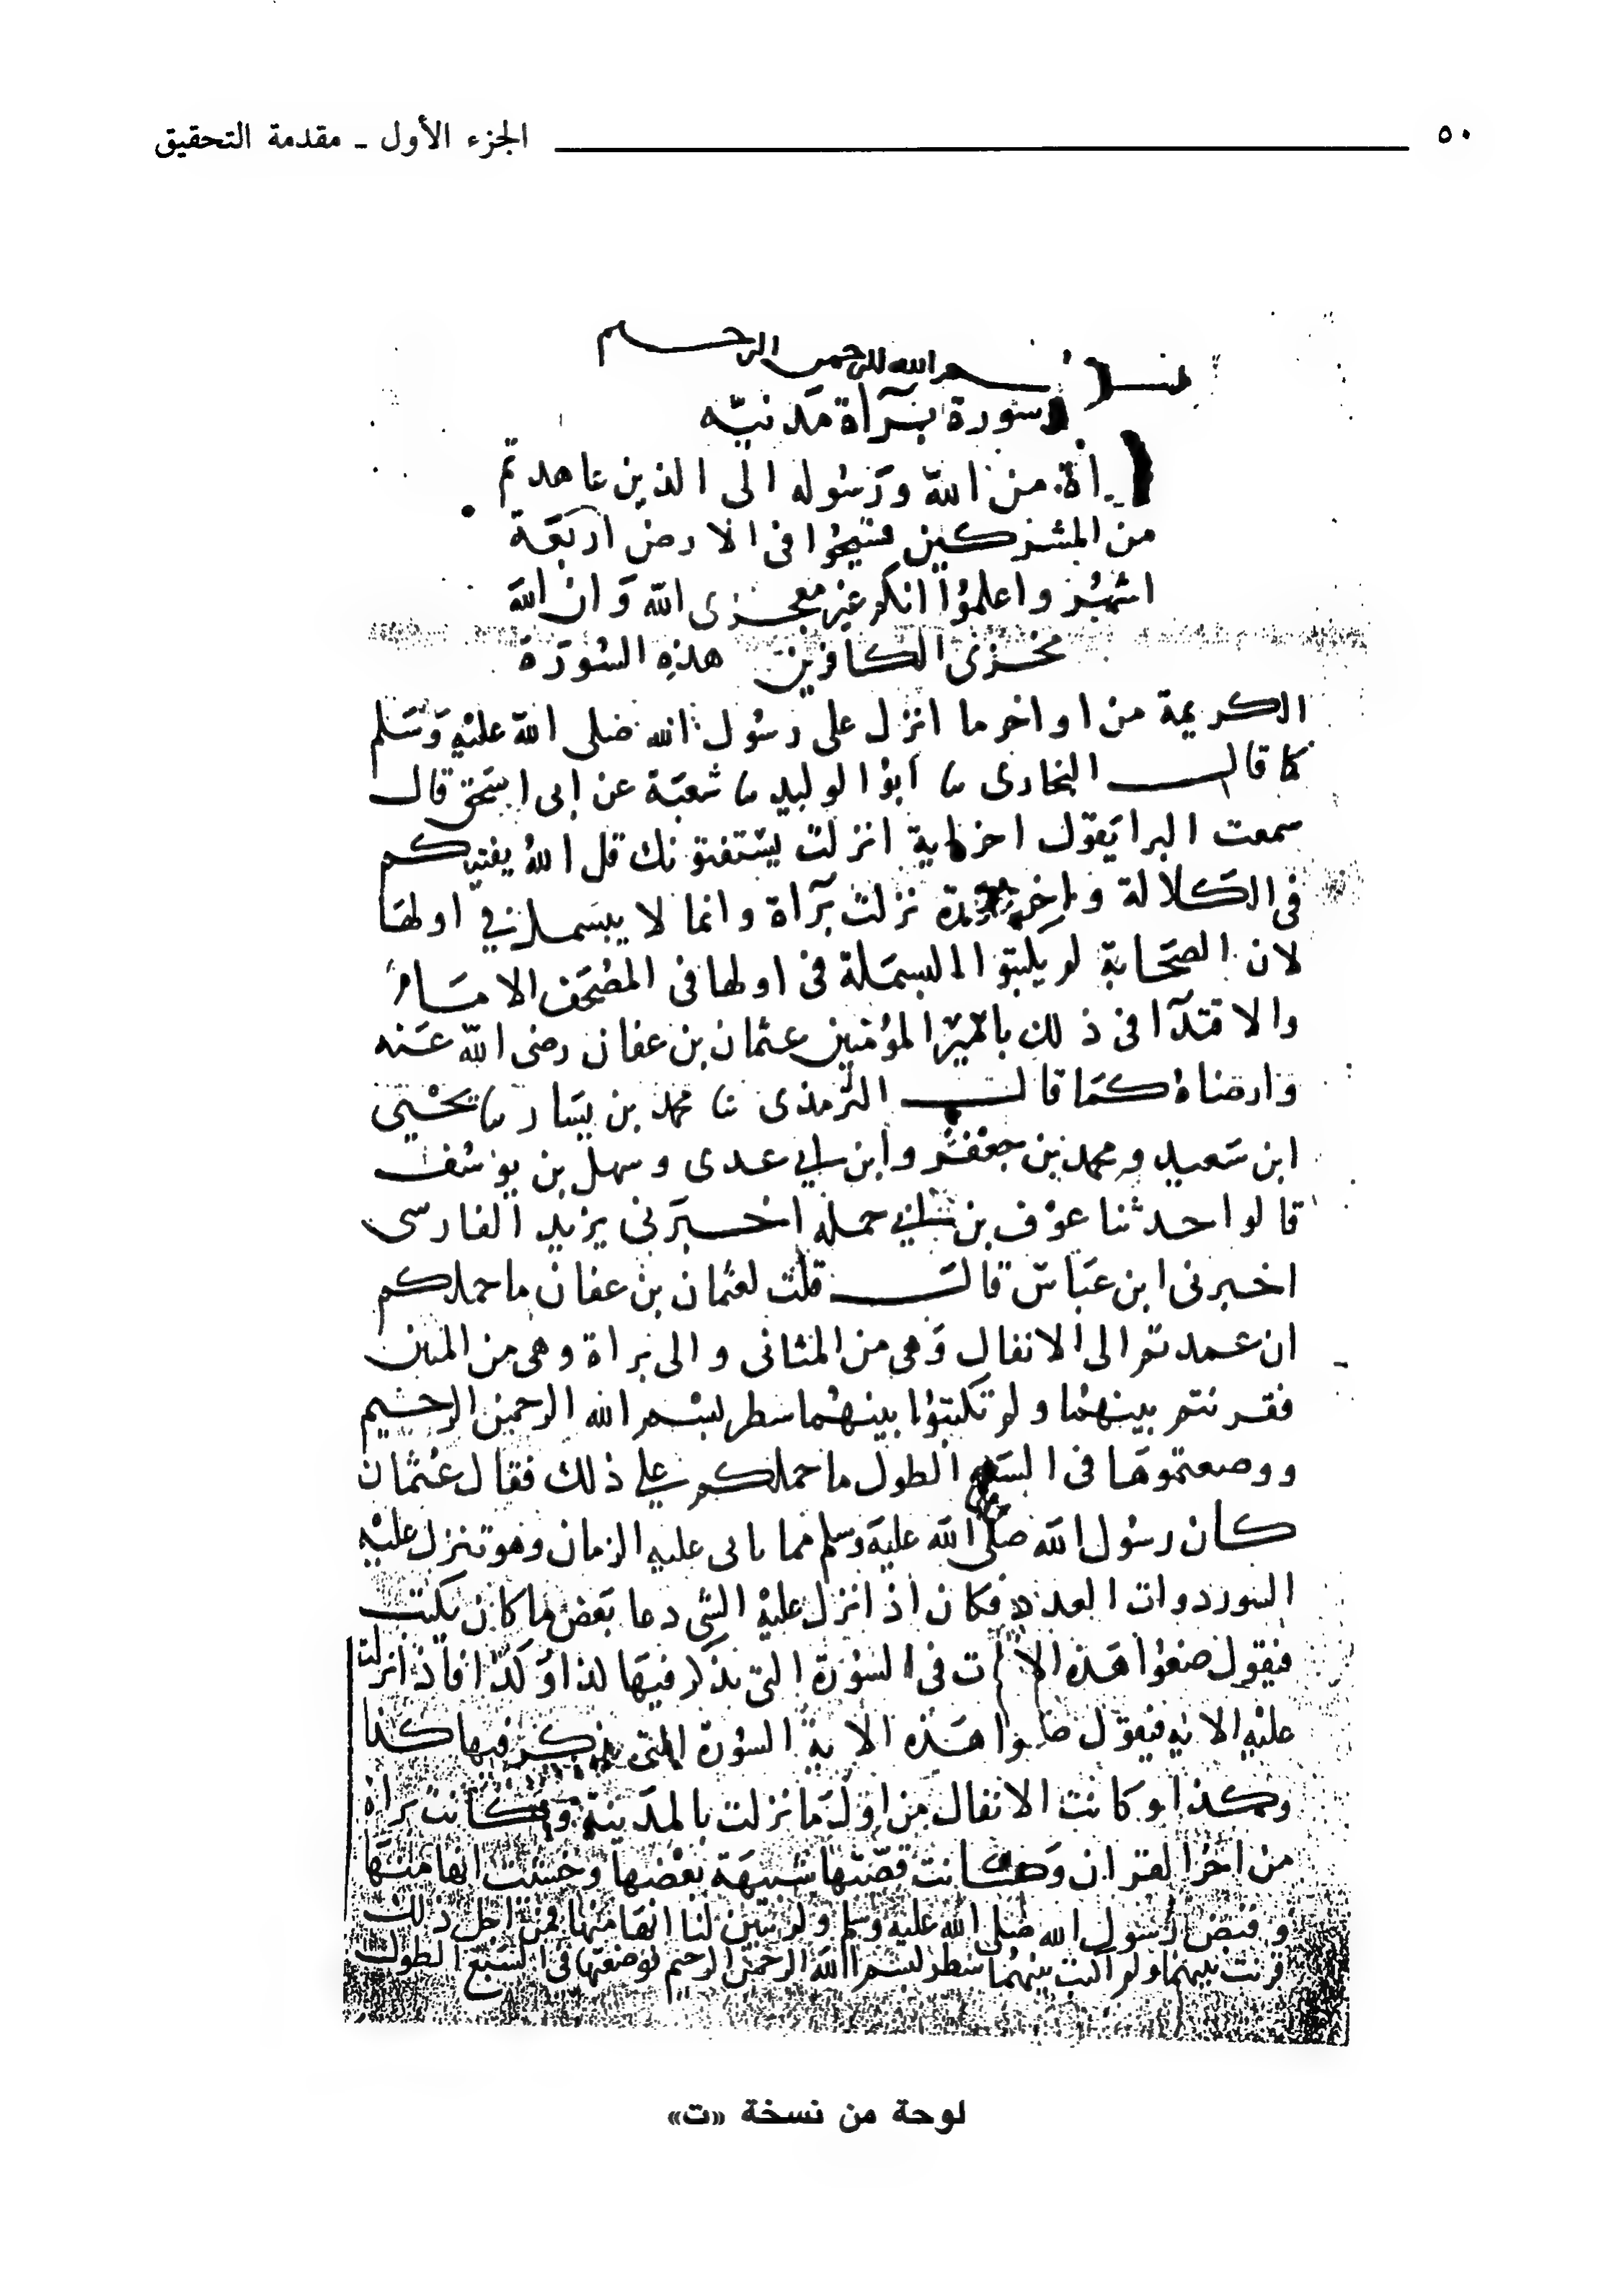 ٥٠ الجزء الأول ـ مقدمة التحقيق
بسم الله الرحمن الرحيم
سورة براة مدنيه
براة من الله ورسوله الى الذين عاهدتم
من المشركين فسيحوا فى الارض اربعة
اشهر واعلموا انكم غير معجزى الله وان الله
مخزى الكافرين هذه السورة
الكريمة من اواخر ما انزل على رسول الله صلى الله عليه وسلم
كما قال البخارى ثنا ابو الوليد ثنا شعبة عن ابى اسحق قال
سمعت البرا يقول اخر اية انزلت يستفتونك قل الله يفتيكم
فى الكلالة واخر سورة نزلت براة وانما لا يبسمل فى اولها
لان الصحابة لم يكتبوا البسملة فى اولها فى المصحف الامام
والاقتدا فى ذلك بامير المؤمنين عثمان بن عفان رضى الله عنه
وارضاه كما قال الترمذى ثنا محمد بن بشار ثنا يحيى
ابن سعيد ومحمد بن جعفر وابن ابي عدى وسهل بن يوسف
قالوا حدثنا عوف بن ابي جميله اخبرنى يزيد الفارسى
اخبرنى ابن عباس قال قلت لعثمان بن عفان ما حملكم
ان عمدتم الى الانفال وهى من المثانى والى براة وهى من المئين
فقرنتم بينهما ولم تكتبوا بينهما سطر بسم الله الرحمن الرحيم
ووضعتموها فى السبع الطول ما حملكم على ذلك فقال عثمان
كان رسول الله صلى الله عليه وسلم مما ياتى عليه الزمان وهو تنزل عليه
السور ذوات العدد فكان اذا نزل عليه الشى دعا بعض ما كان يكتب
فيقول ضعوا هذه الايات فى السورة التى يذكر فيها كذا وكذا فاذا نزلت
عليه الايه فيقول ضعوا هذه الاية السورة التى يذكر فيها كذا
وكذا وكانت الانفال من اول ما نزلت بالمدينة وكانت براة
من اخر القران وكانت قصتها شبيهة بعضها وحسبت انها منها
وقبض رسول الله صلى الله عليه وسلم ولم يتبين لنا انها منها فمن اجل ذلك
قرنت بينهما ولم اكتب بينهما سطر بسم الله الرحمن الرحيم ووضعتها فى السبع الطول
لوحة من نسخة «ت»